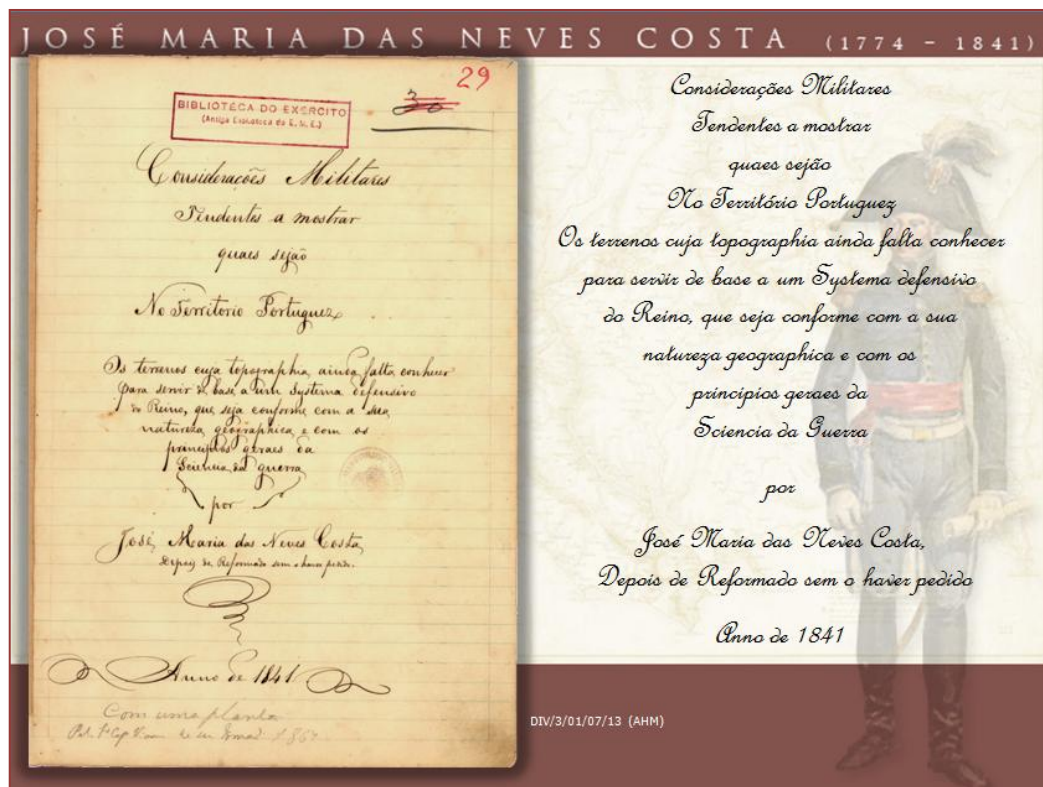 JOSÉ MARIA DAS NEVES COSTA (1774 - 1841)
29
30
BIBLIOTECA DO EXERCITO
(Antiga Biblioteca do E. M. E.)
Considerações Militares
Tendentes a mostrar
quaes sejão
No Territorio Portuguez
Os terrenos cuja topographia ainda falta conhecer
para servir de base a um Systema defensivo
do Reino, que seja conforme com a sua
natureza geographica e com os
principios geraes da
Sciencia da guerra
por
José Maria das Neves Costa,
Depois de Reformado sem o haver pedido.
Anno de 1841
Com uma planta
Considerações Militares
Tendentes a mostrar
quaes sejão
No Território Portuguez
Os terrenos cuja topographia ainda falta conhecer
para servir de base a um Systema defensivo
do Reino, que seja conforme com a sua
natureza geographica e com os
princípios geraes da
Sciencia da Guerra
por
José Maria das Neves Costa,
Depois de Reformado sem o haver pedido
Anno de 1841
DIV/3/01/07/13 (AHM)